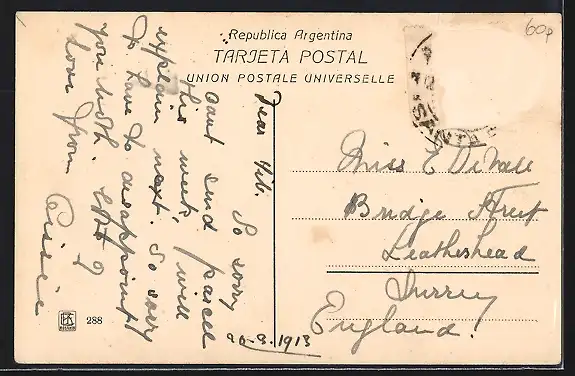 Republica Argentina
TARJETA POSTAL
UNION POSTALE UNIVERSELLE
60p
Miss E DeVall
Bridge Street
Leatherhead
Surrey
England!
Dear
So sorry
cant send parcell
this week, will
explain next. So sorry
to have to disappoint
you both.
love from
Cissie
26-8.1913
288